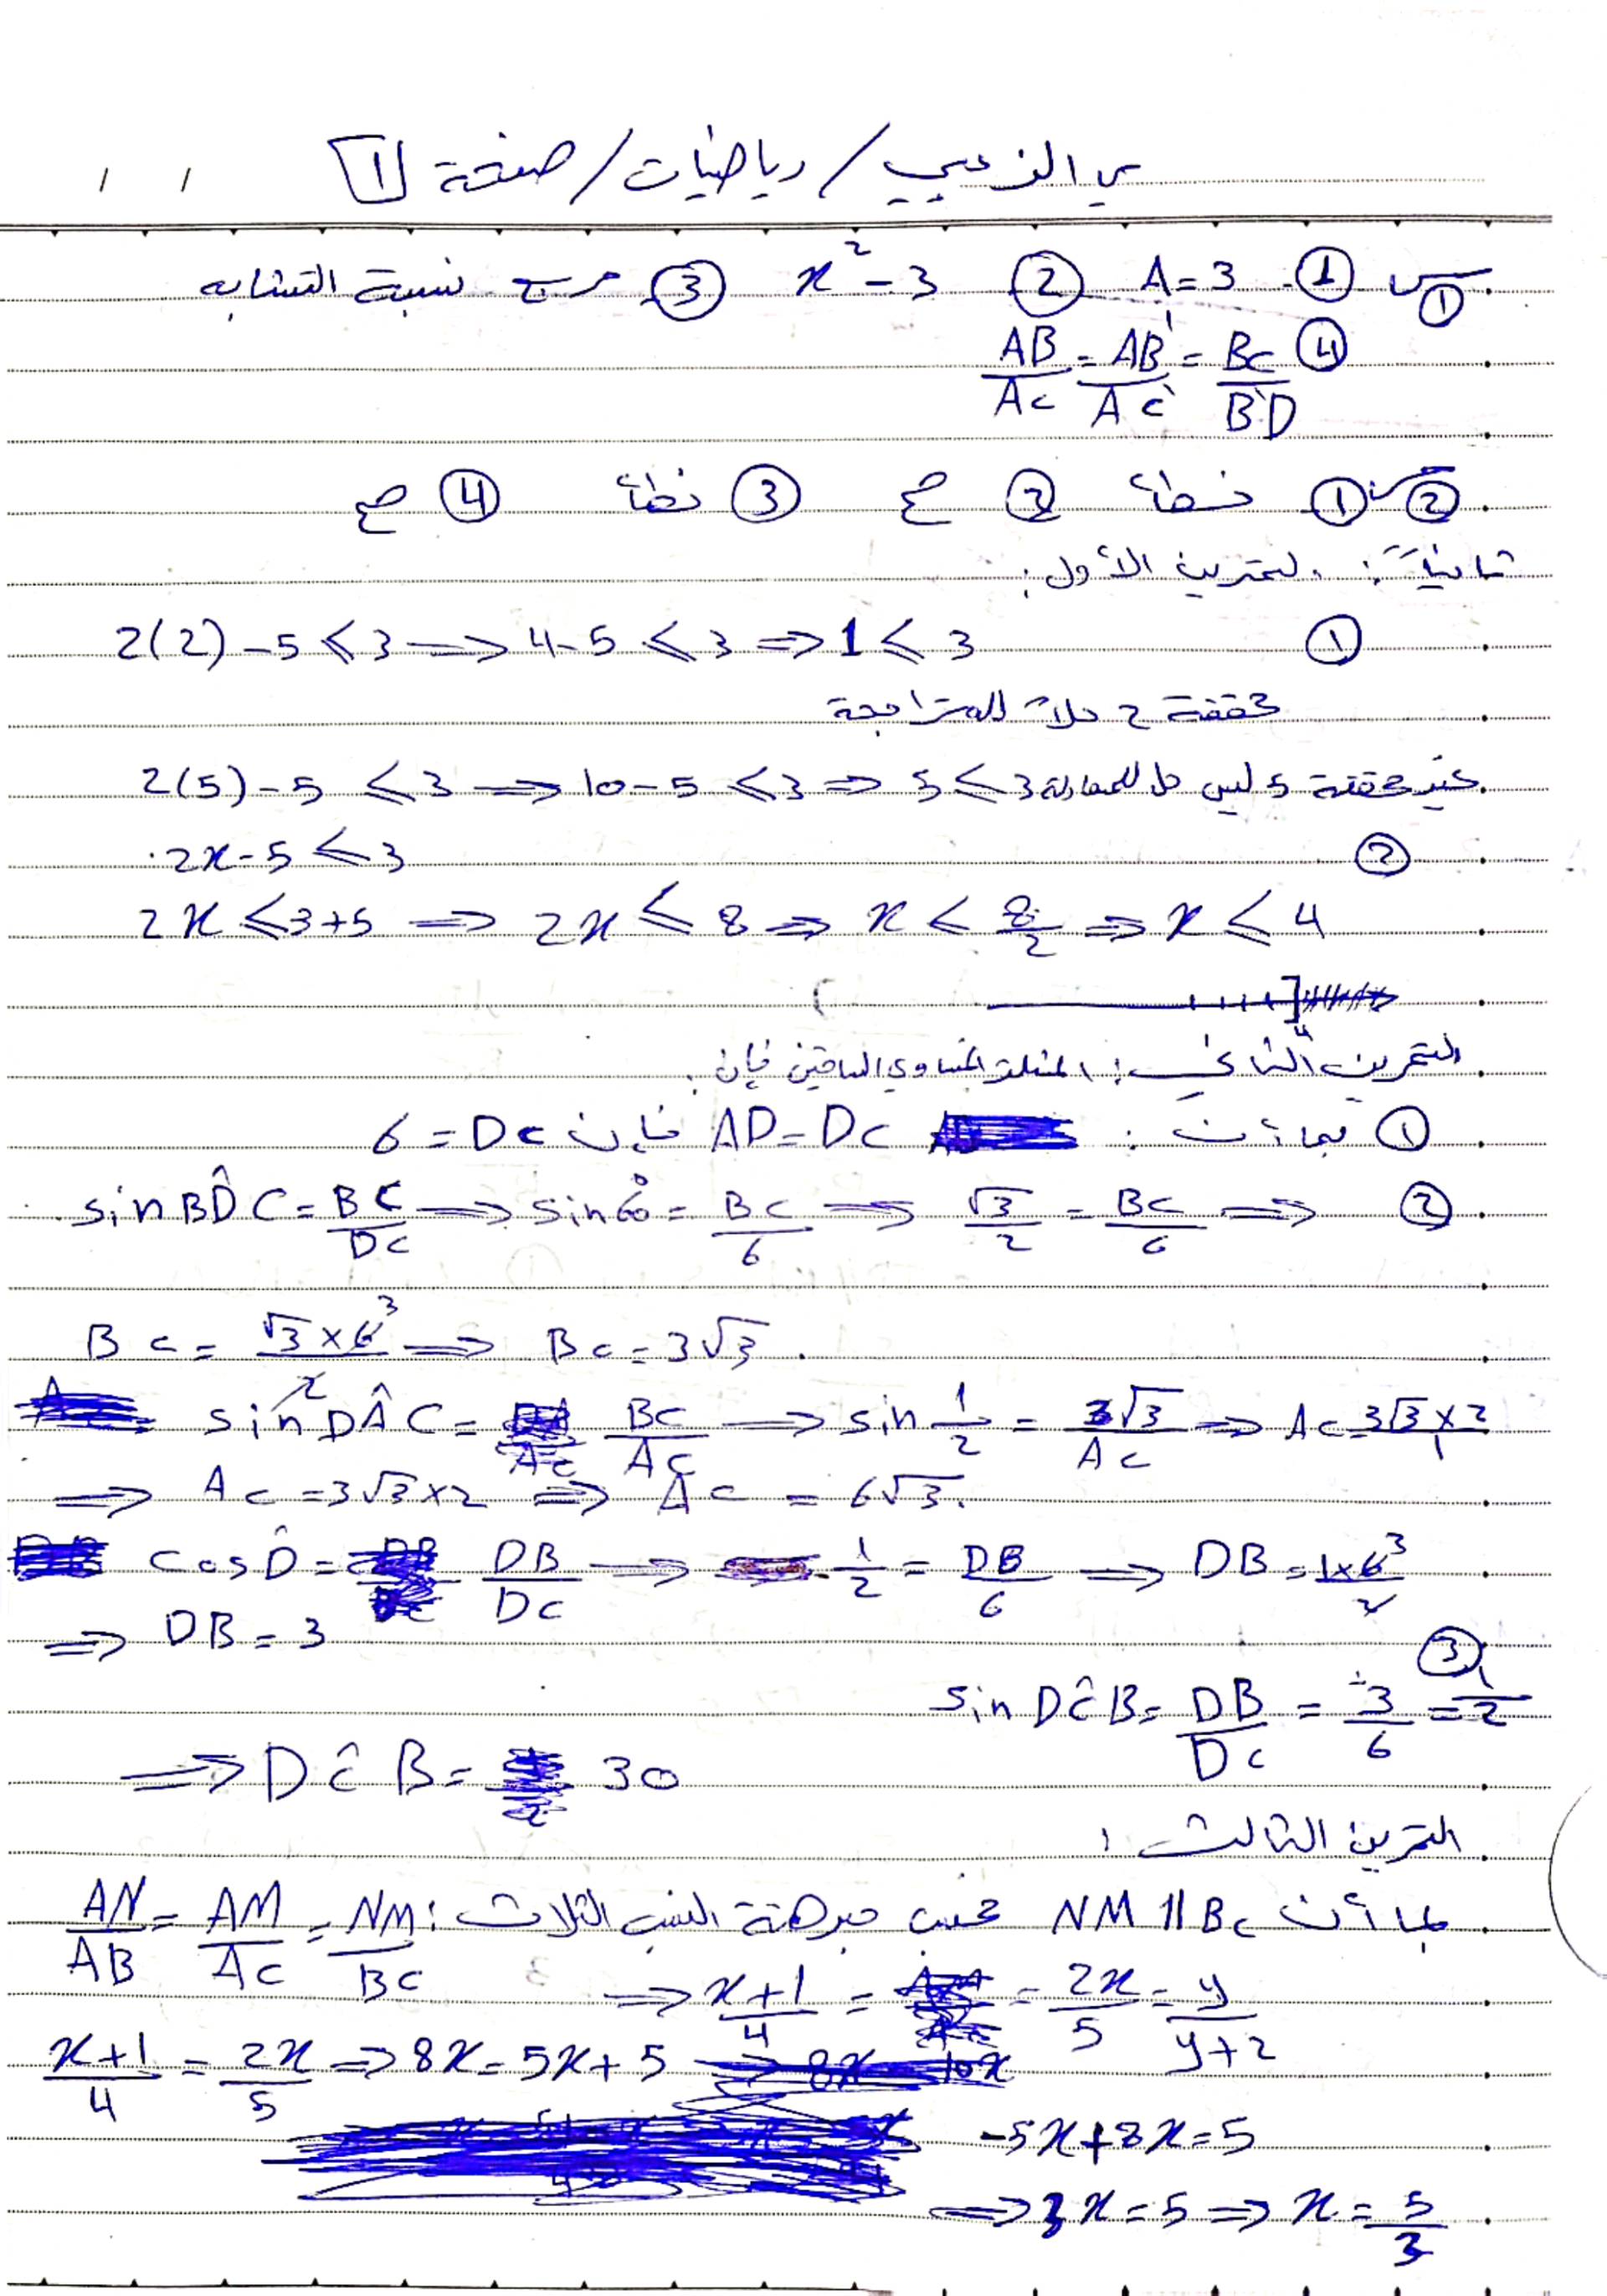 ي الزعبي / رياضيات / صفحة 1
س1 ① A = 3 ② x² - 3 ③ مربع نسبة التشابه
④ AB/AC = AB'/AC' = BC/B'D
س2 ① خطأ ② صح ③ خطأ ④ صح
ثانياً: التمرين الأول:
① 2(2) - 5 ⩽ 3 ⟹ 4 - 5 ⩽ 3 ⟹ 1 ⩽ 3
محققة 2 حلاً للمتراجحة
2(5) - 5 ⩽ 3 ⟹ 10 - 5 ⩽ 3 ⟹ 5 ⩽ 3 غير محققة 5 ليس حل للمعادلة
② 2x - 5 ⩽ 3
2x ⩽ 3 + 5 ⟹ 2x ⩽ 8 ⟹ x ⩽ 8/2 ⟹ x ⩽ 4
] 4
التمرين الثاني: المثلث المتساوي الساقين فإن
① بما أن: AD = DC فإن DC = 6
② sin BD̂C = BC/DC ⟹ sin 60° = BC/6 ⟹ √3/2 = BC/6 ⟹
BC = √3 × 6/2 ⟹ BC = 3√3.
sin DÂC = BC/AC ⟹ sin 1/2 = 3√3/AC ⟹ AC = 3√3 × 2/1
⟹ AC = 3√3 × 2 ⟹ AC = 6√3.
cos D̂ = DB/DC ⟹ 1/2 = DB/6 ⟹ DB = 1×6/2
⟹ DB = 3
③
sin DĈB = DB/DC = 3/6 = 1/2
⟹ DĈB = 30
التمرين الثالث:
بما أن NM // BC حسب مبرهنة النسب الثلاث: AN/AB = AM/AC = NM/BC
⟹ x+1/4 = 2x/5 = y/y+2
x+1/4 = 2x/5 ⟹ 8x = 5x + 5
-5x + 8x = 5
⟹ 3x = 5 ⟹ x = 5/3